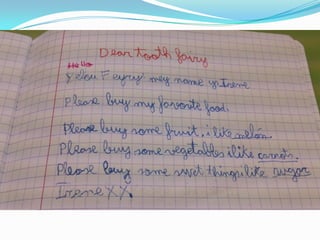 Dear tooth farry
Hello
Feyry mey name is Irene
Please buy my favorite food.
Please buy some fruit, i like melón.
Please buy some vegetables i like carrots.
Please buy some swet things i like sugar
Irene X X.